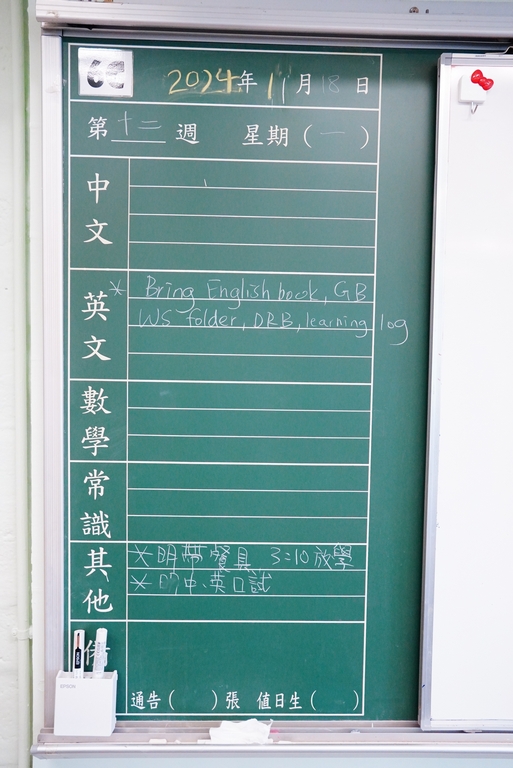 6C
2024年 11月 18日
第 十二 週 星期（一）
中文
英文
* Bring English book, GB
WS folder, DRB, learning log
數學
常識
其他
* 明帶餐具 3:10放學
* 明中、英口試
備
通告（ ）張 值日生（ ）
EPSON